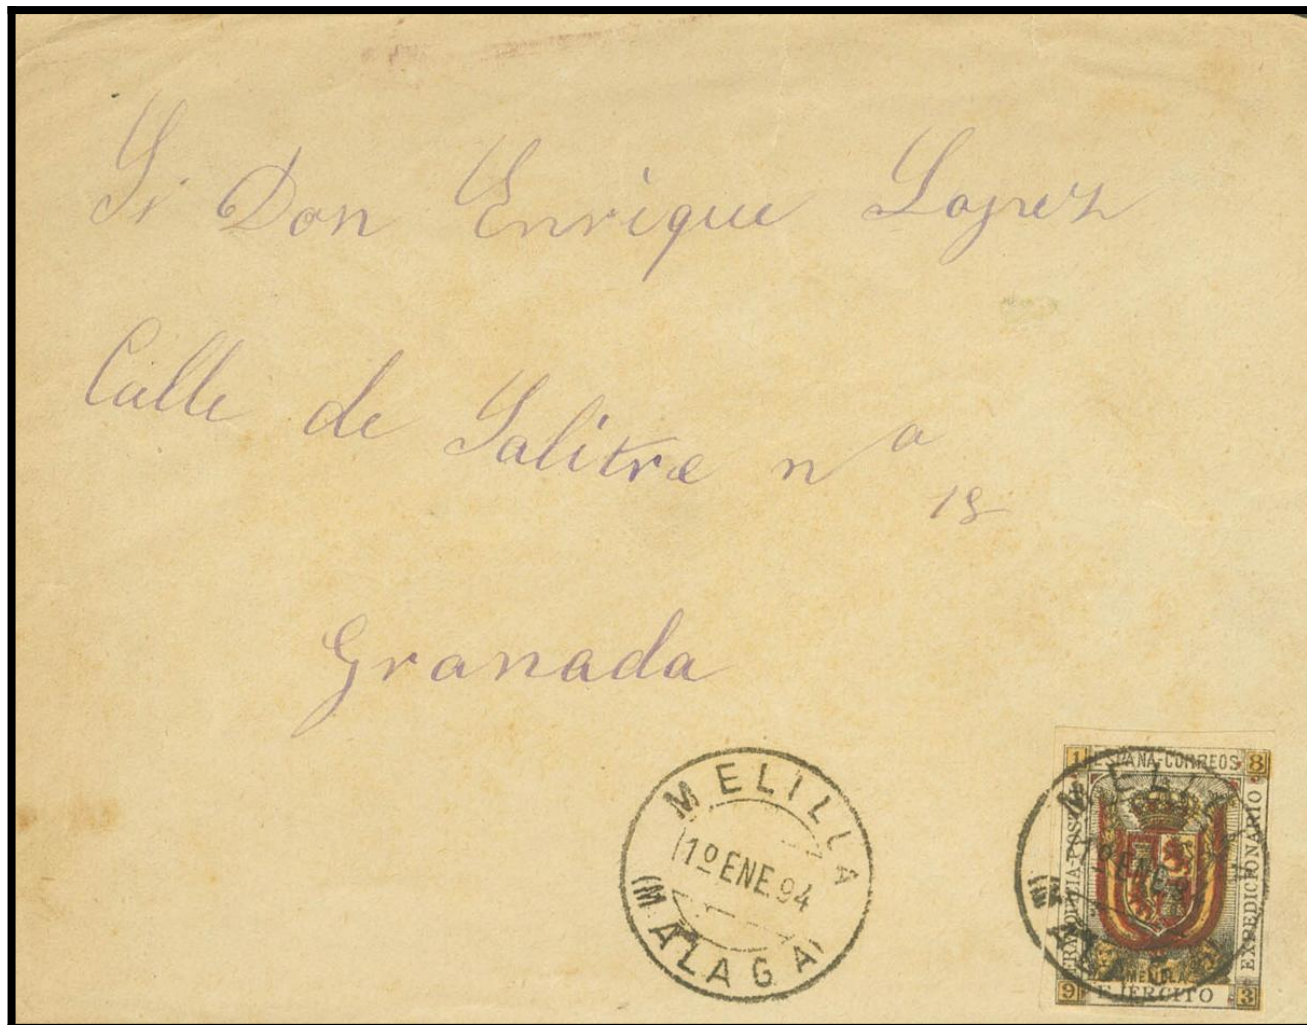 Sr Don Enrique Lopez
Calle de Salitre nº
18
Granada
MELILLA
1º ENE.94
(MALAGA)
1 ESPAÑA-CORREOS 8
EXPEDICIONARIO
MELILLA
9 EJERCITO 3